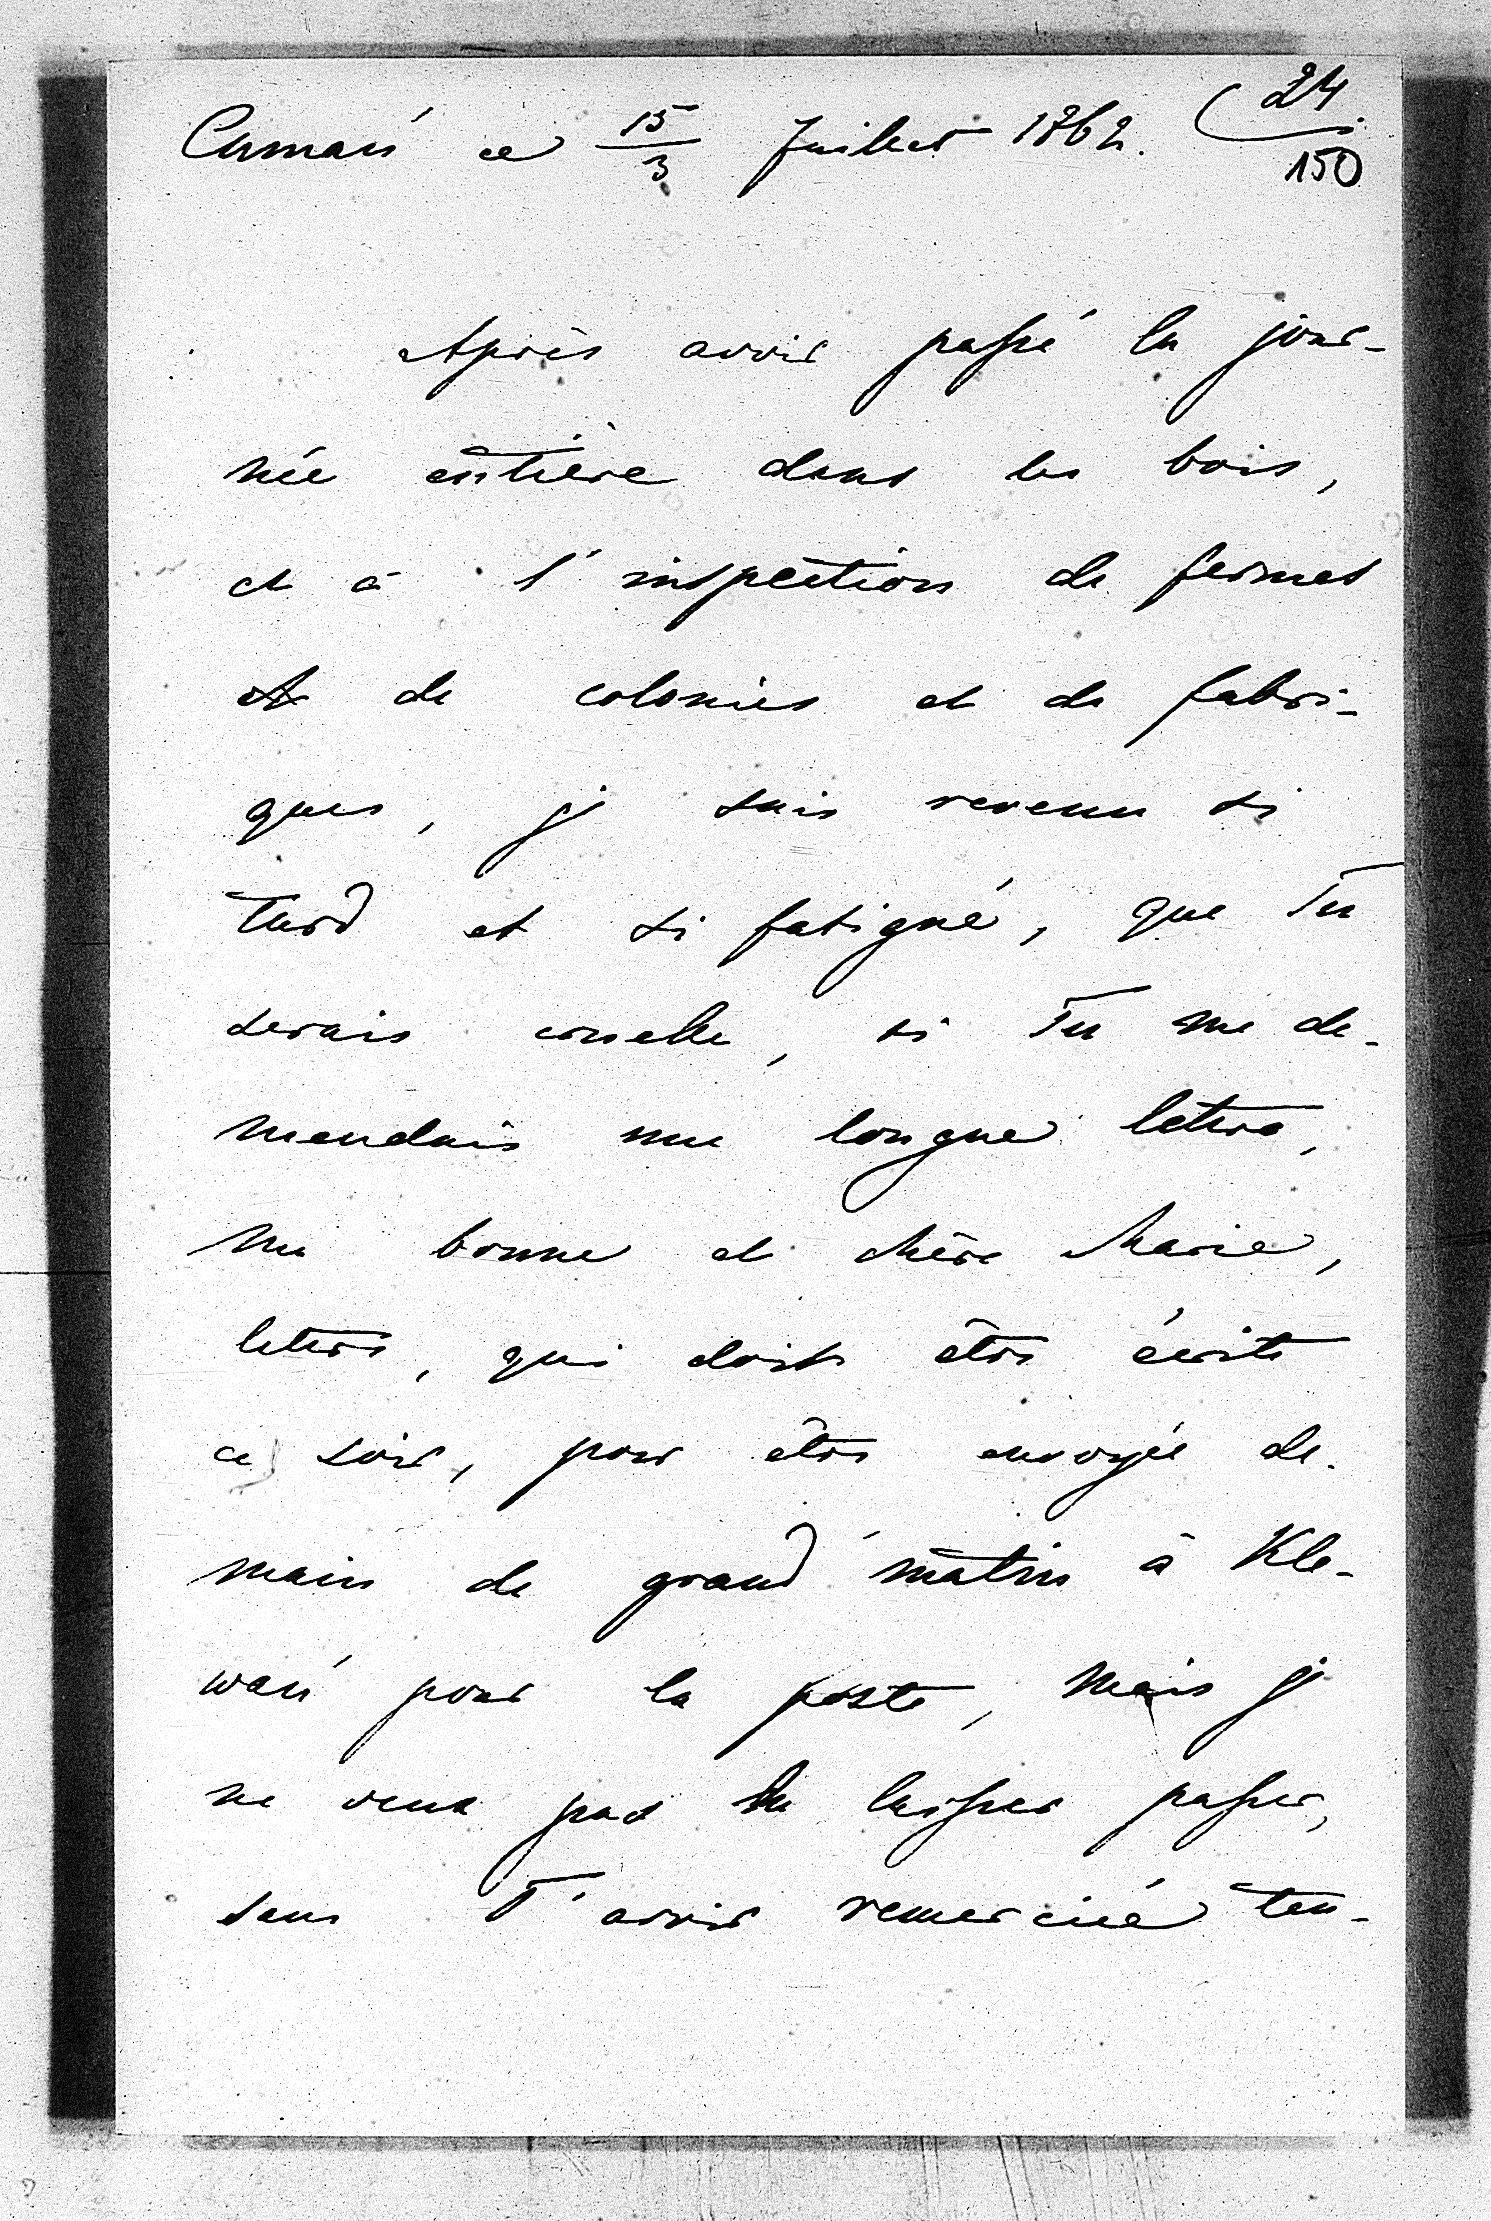 Cumań ce 15/3 Juillet 1862. (24/150
Après avoir passé la jour-
née entière dans les bois,
et à l'inspection de fermes
et de colonies et de fabri-
ques, je suis revenu si
tard et si fatigué, que Tu
serais cruelle, si Tu me de-
mandais une longue lettre,
ma bonne et chère Marie,
lettre, qui doit être écrite
ce soir, pour être envoyée de-
main de grand matin à Kle-
wań pour la poste, mais je
ne veux pas la laisser passer,
sans T'avoir remercié ten-